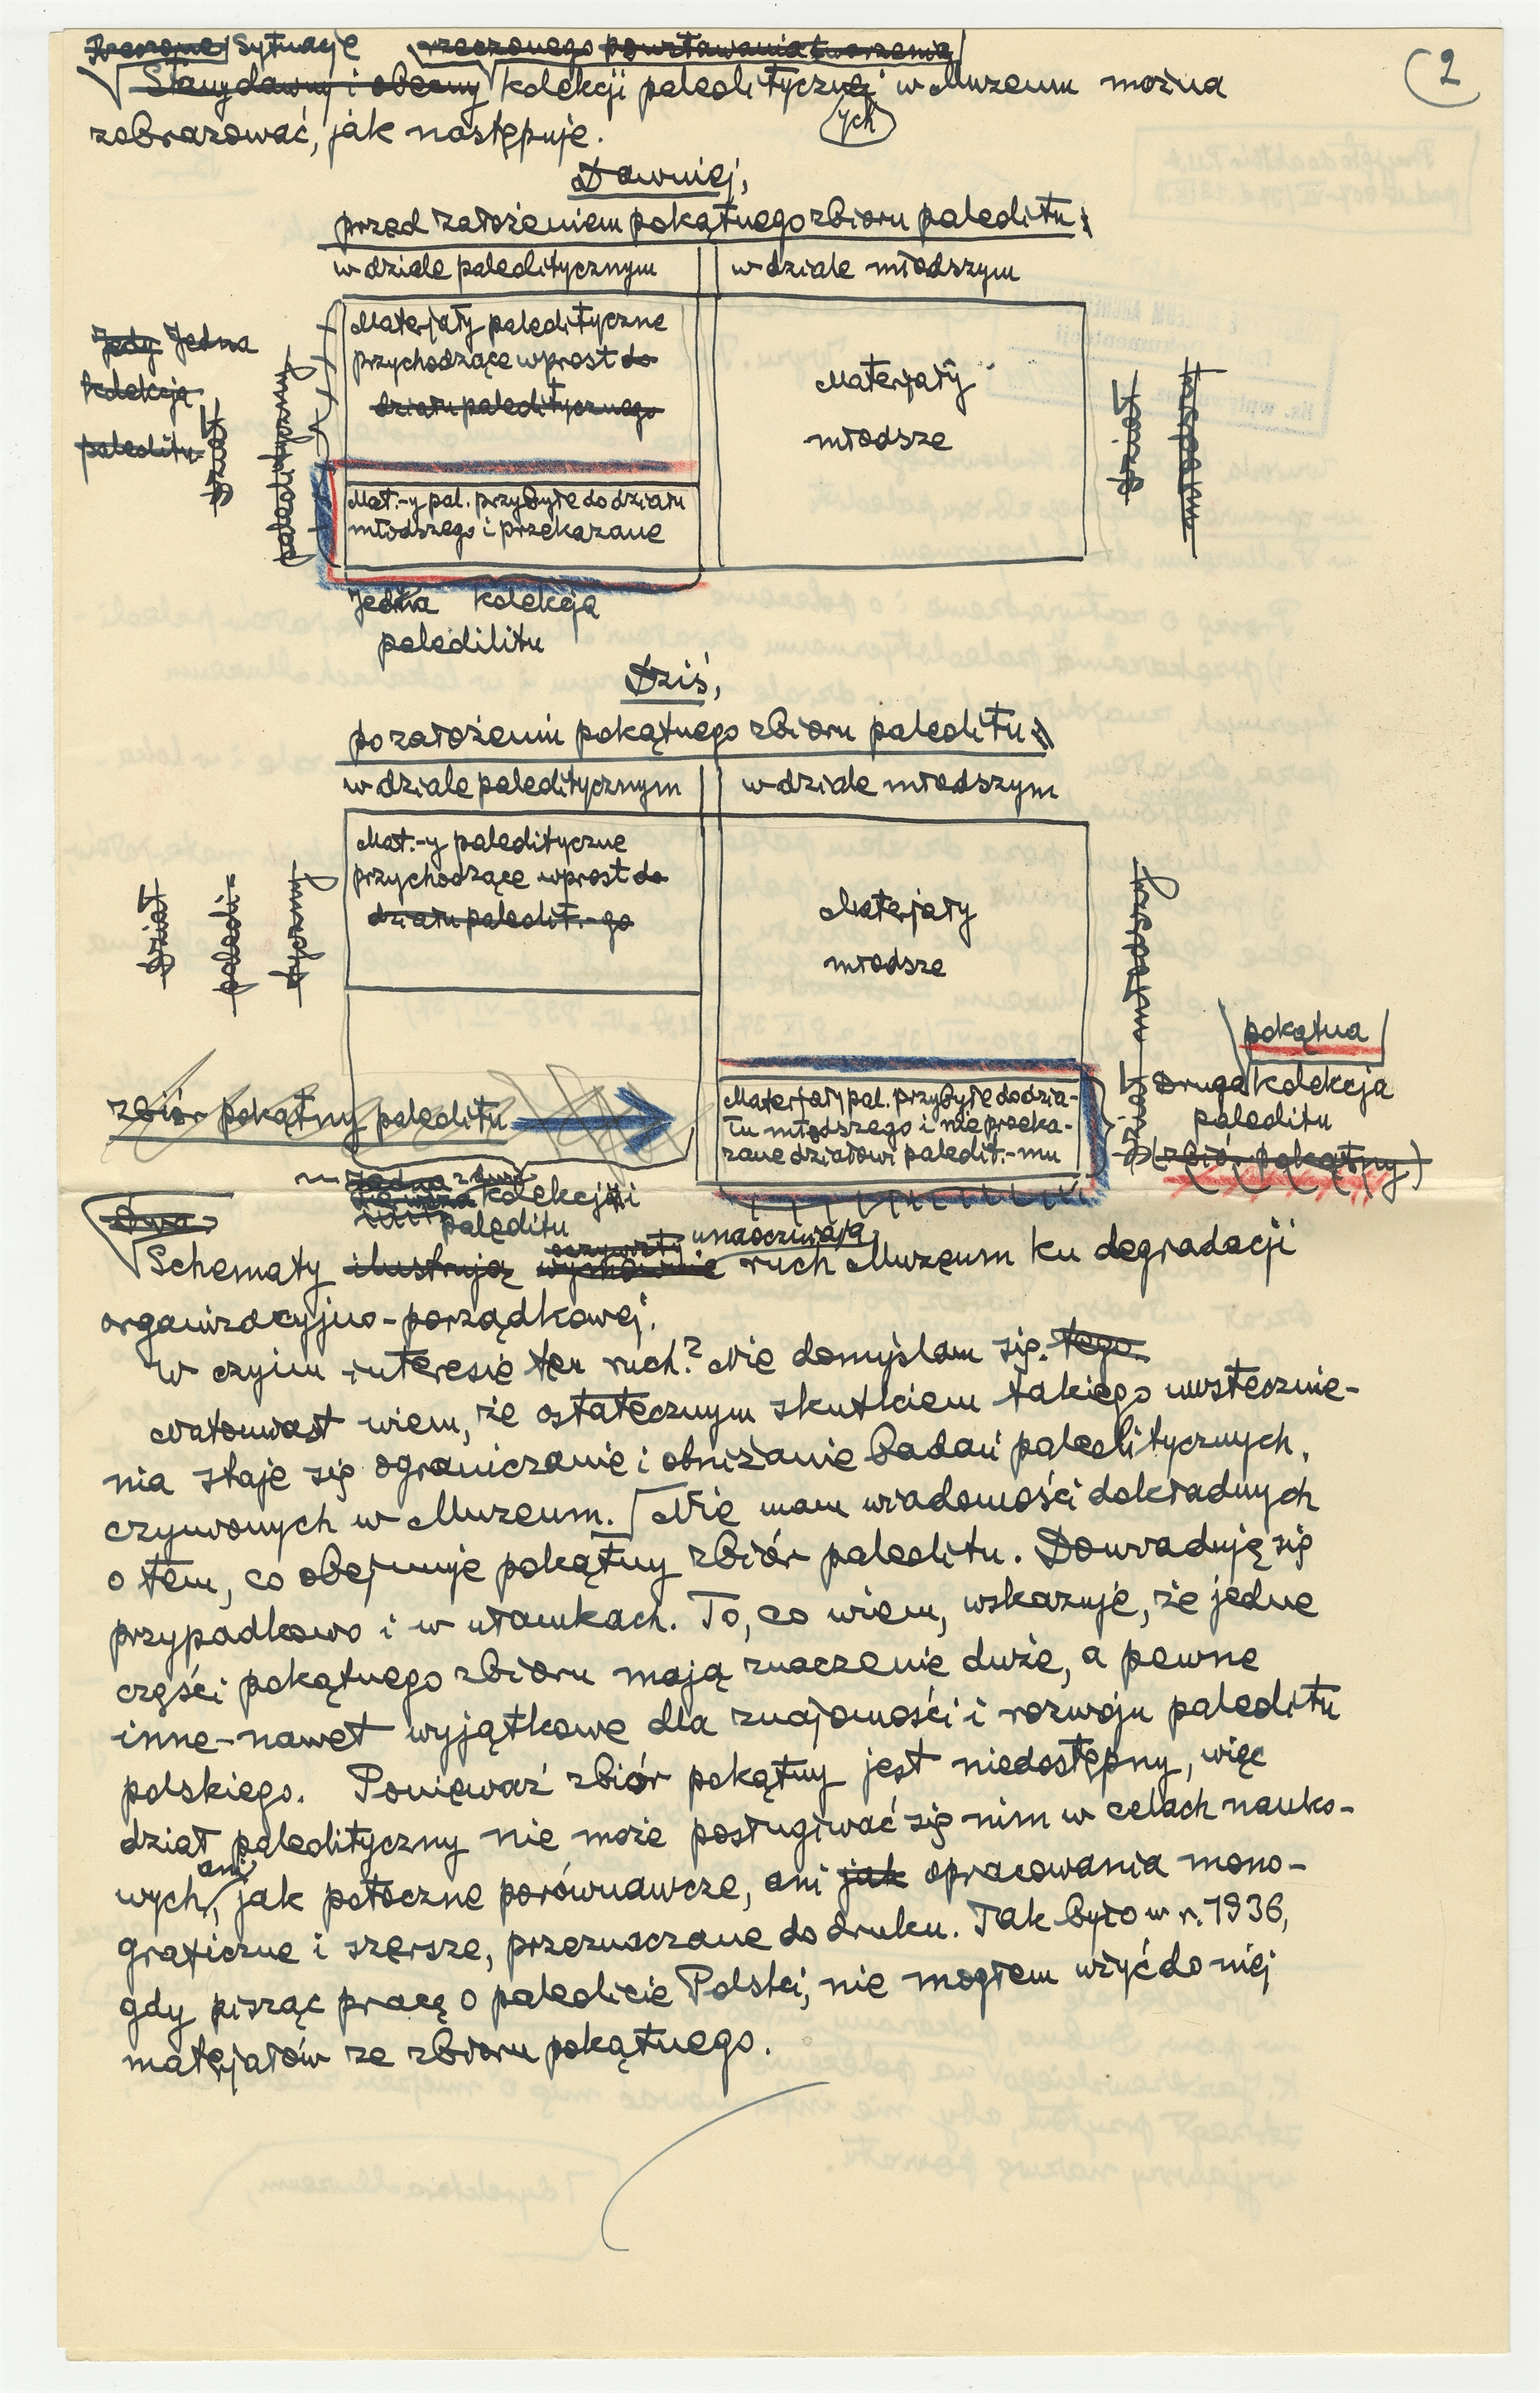 Sytuację rzeczonego powstawania tworzenia
2
Stany dawny i obecny kolekcji paleolitycznej w Muzeum można
ych
zobrazować, jak następuje.
Dawniej,
przed założeniem pokątnego zbioru paleolitu:
w dziale paleolitycznym w dziale młodszym
Materjały paleolityczne
przychodzące wprost do
działu paleolitycznego
Jedy Jedna
kolekcja
paleolitu
dział
paleolityczny
Materjały
młodsze
dział
młodszy
Mat.-y pal. przybyłe do działu
młodszego i przekazane
Jedna kolekcja
paleolilitu
Dziś,
po założeniu pokątnego zbioru paleolitu
w dziale paleolitycznym w dziale młodszym
Mat.-y paleolityczne
przychodzące wprost do
działu paleolit.-go
dział
paleoli-
tyczny
Materjały
młodsze
dział młodszy
pokątna
Druga kolekcja
paleolitu
(zbiór pokątny)
zbiór pokątny paleolitu
Materjały pal. przybyłe do dzia-
łu młodszego i nie przeka-
zane działowi paleolit.-mu
Jedna z dwu
Pierwsza kolekcji
paleolitu
Dwa
oczywisty unaoczniają
Schematy ilustrują wymownie ruch Muzeum ku degradacji
organizacyjno-porządkowej.
W czyim interesie ten ruch? Nie domyślam się. tego.
Natomiast wiem, że ostatecznym skutkiem takiego uwstecznie-
nia staje się ograniczanie i obniżanie badań paleolitycznych,
czynionych w Muzeum. Nie mam wiadomości dokładnych
o tem, co obejmuje pokątny zbiór paleolitu. Dowiaduję się
przypadkowo i w ułamkach. To, co wiem, wskazuje, że jedne
części pokątnego zbioru mają znaczenie duże, a pewne
inne-nawet wyjątkowe dla znajomości i rozwoju paleolitu
polskiego. Ponieważ zbiór pokątny jest niedostępny, więc
dział paleolityczny nie może posługiwać się nim w celach nauko-
ani
wych, jak potoczne porównawcze, ani jak opracowania mono-
graficzne i szersze, przeznaczane do druku. Tak było w r. 1936,
gdy pisząc pracę o paleolicie Polski, nie mogłem użyć do niej
materjałów ze zbioru pokątnego.